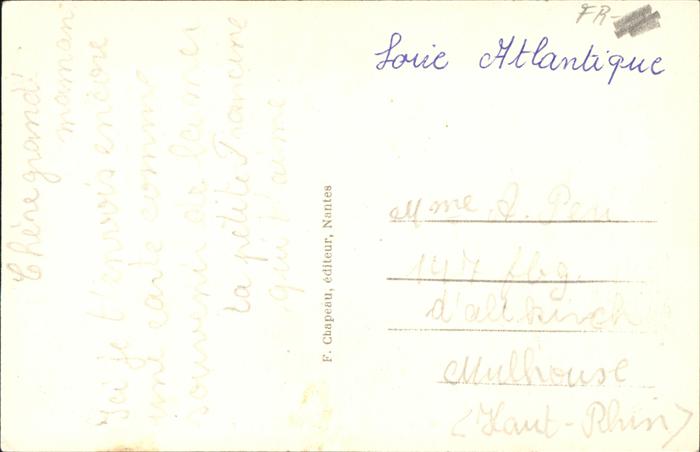 Chère grand'
maman
Ici je t'envois encore
une carte comme
souvenir de la mer
La petite Francine
qui t'aime
F. Chapeau, éditeur, Nantes
FR-
Loire Atlantique
Mme A. Peri
147 fbg.
d'altkirch
Mulhouse
(Haut-Rhin)